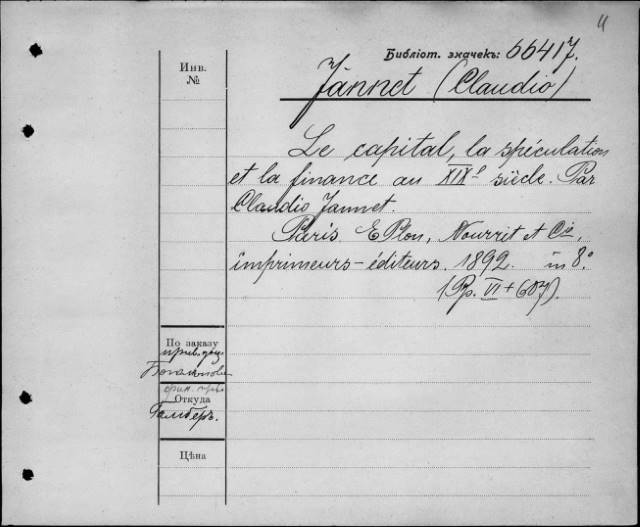 4
Библіот. значекъ: 66417.
Инв. №
Jannet (Claudio)
Le capital, la spéculation
et la finance au XIXe siècle. Par
Claudio Jannet.
Paris. E Plon, Nourrit et Cie,
imprimeurs-éditeurs. 1892. in 8.°
(Pp. VI + 607).
По заказу
прив. доц.
Откуда
Гамберъ.
Цѣна